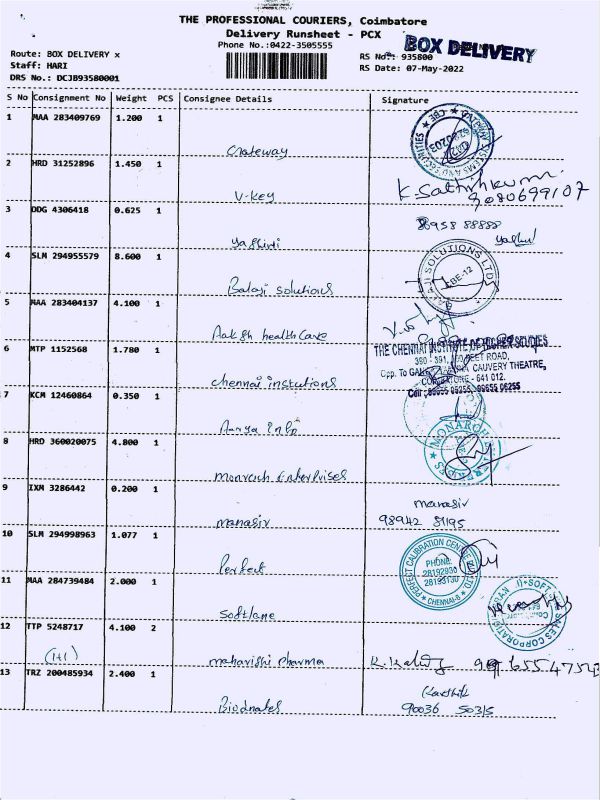 THE PROFESSIONAL COURIERS, Coimbatore
Delivery Runsheet - PCX
Phone No.:0422-3505555
BOX DELIVERY
Route: BOX DELIVERY x
Staff: HARI
DRS No.: DCJB93580001
RS No.: 935800
RS Date: 07-May-2022
S No Consignment No Weight PCS Consignee Details Signature
1 MAA 283409769 1.200 1
Gateway
2 HRD 31252896 1.450 1
V-Key K. Sathishkumar
9080699107
3 DDG 4306418 0.625 1 88958 88888
yashini yashul
4 SLM 294955579 8.600 1
Balaji solutions
5 MAA 283404137 4.100 1
Aaksh healthCare
6 MTP 1152568 1.780 1
THE CHENNAI INSTITUTE OF HIGHER STUDIES
390 - 391, 100 FEET ROAD,
CAUVERY THEATRE,
COIMBATORE - 641 012.
Cell : 99655 96255
chennai instutions
7 KCM 12460864 0.350 1
Aarya Info
8 HRD 360020075 4.800 1
MONARCH
monarch Enterprises
9 IXM 3286442 0.200 1 manasir
manasir 98942 81195
10 SLM 294998963 1.077 1
PERFECT CALIBRATION CENTRE
PHONE:
28192836
28193130
CHENNAI-8
Perfect
11 MAA 284739484 2.000 1
softlane
12 TTP 5248717 4.100 2
(1+1) maharishi pharma
13 TRZ 200485934 2.400 1 Karthik
90036 50315